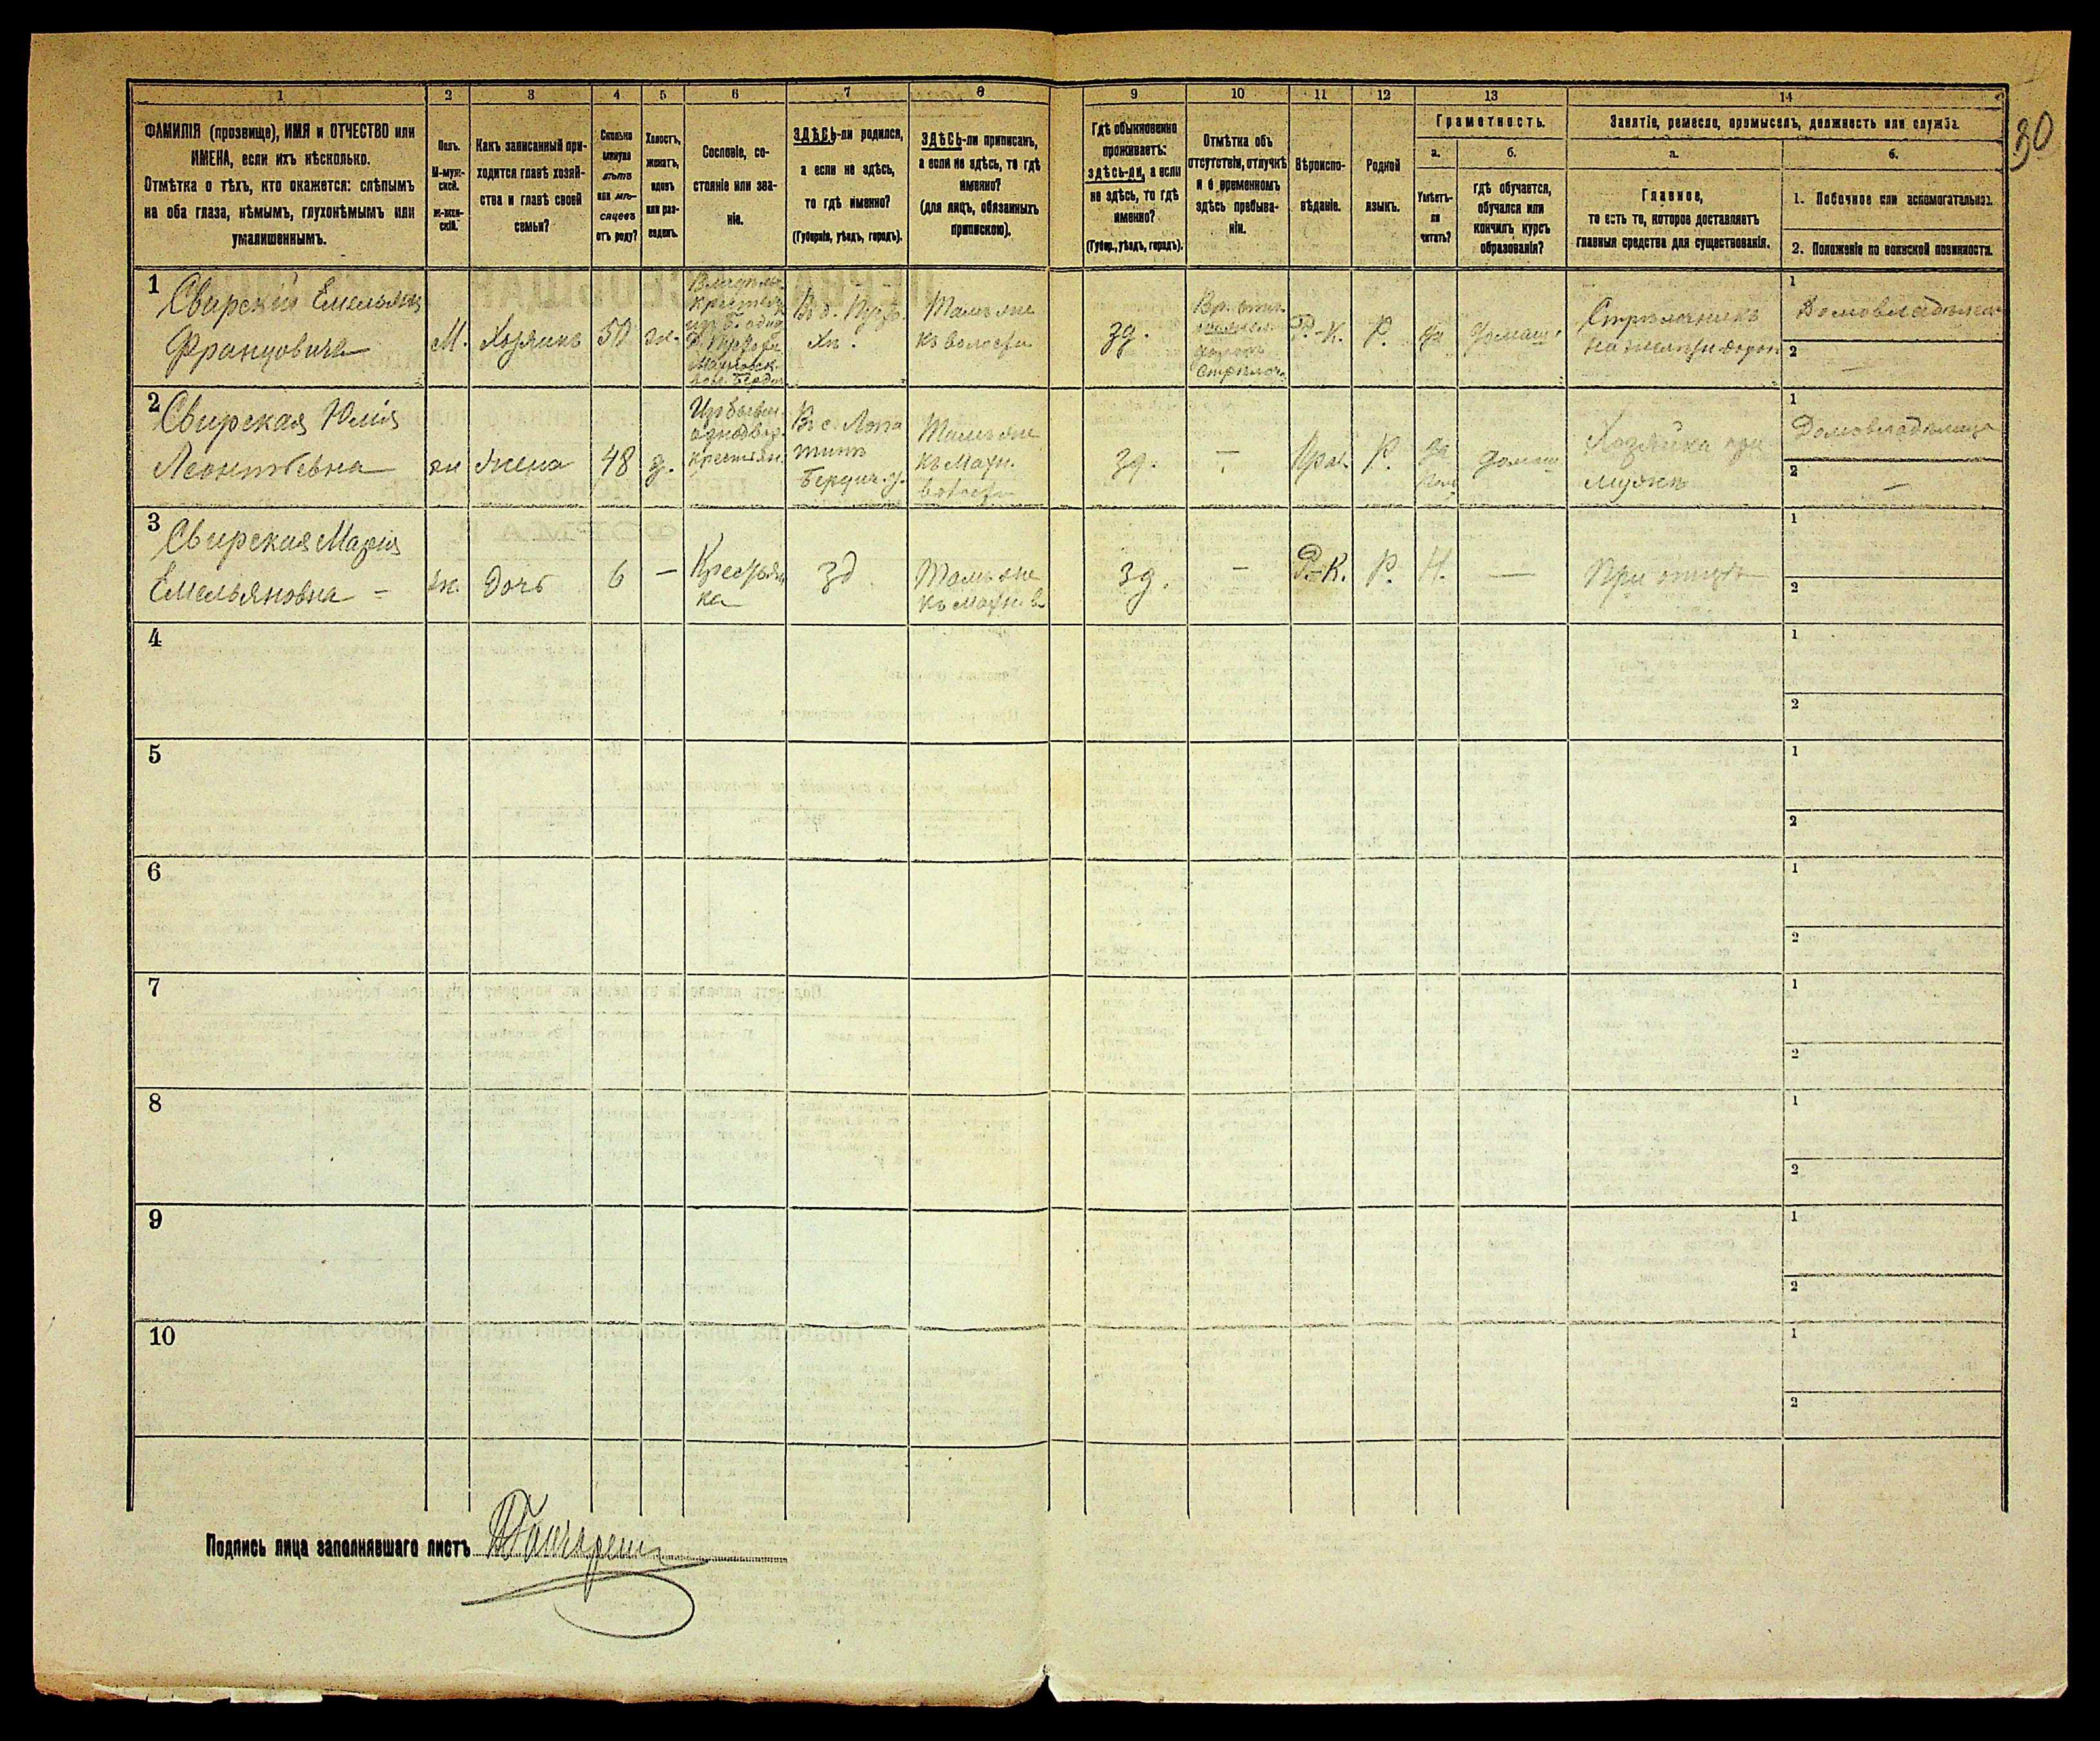 1 2 3 4 5 6 7 8 9 10 11 12 13 14
ФАМИЛІЯ (прозвище), ИМЯ и ОТЧЕСТВО или
ИМЕНА, если ихъ нѣсколько.
Отмѣтка о тѣхъ, кто окажется: слѣпымъ
на оба глаза, нѣмымъ, глухонѣмымъ или
умалишеннымъ.
Полъ.
М-муж-
ской.
ж-жен-
скій.
Какъ записанный при-
ходится главѣ хозяй-
ства и главѣ своей
семьи?
Сколько
минуло
лѣтъ
или мѣ-
сяцевъ
отъ роду?
Холостъ,
женатъ,
вдовъ
или раз-
веденъ.
Сословіе, со-
стояніе или зва-
ніе.
ЗДѢСЬ-ли родился,
а если не здѣсь,
то гдѣ именно?
(Губернія, уѣздъ, городъ).
ЗДѢСЬ-ли приписанъ,
а если не здѣсь, то гдѣ
именно?
(для лицъ, обязанныхъ
припискою).
Гдѣ обыкновенно
проживаетъ:
здѣсь-ли, а если
не здѣсь, то гдѣ
именно?
(Губер., уѣздъ, городъ).
Отмѣтка объ
отсутствіи, отлучкѣ
и о временномъ
здѣсь пребыва-
ніи.
Вѣроиспо-
вѣданіе.
Родной
языкъ.
Грамотность.
а.
Умѣетъ-
ли
читать?
б.
гдѣ обучается,
обучался или
кончилъ курсъ
образованія?
Занятіе, ремесло, промыселъ, должность или служба.
а.
Главное,
то есть то, которое доставляетъ
главныя средства для существованія.
б.
1. Побочное или вспомогательное.
2. Положеніе по воинской повинности.
1
Свирскій Емельянъ
Францовичъ
М. Хозяинъ 50 ж.
Тамъ же
къ волости
зд.
Р.-К. Р. да домаш.
1 Домовладѣлецъ
2 —
2
Свирская Юлія
Леонтьевна
ж жена 48 з.
крестьян.
Въ с. Лопа
тинъ
Бердич. у.
Тамъ же
къ Махн.
волости
зд. — Прав. Р. да домаш
Хозяйка при
мужѣ
1 Домовладѣлица
2 —
3
Свирская Марія
Емельяновна -
ж. дочь 6 —
Крестьян
ка
зд
Тамъ же
къ Махн. в.
зд. — Р.-К. Р. Н. — При отцѣ
1
2
4
1
2
5
1
2
6
1
2
7
1
2
8
1
2
9
1
2
10
1
2
Подпись лица заполнявшаго листъ